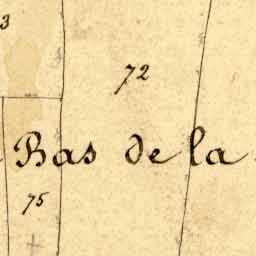 72
Bas de la
75